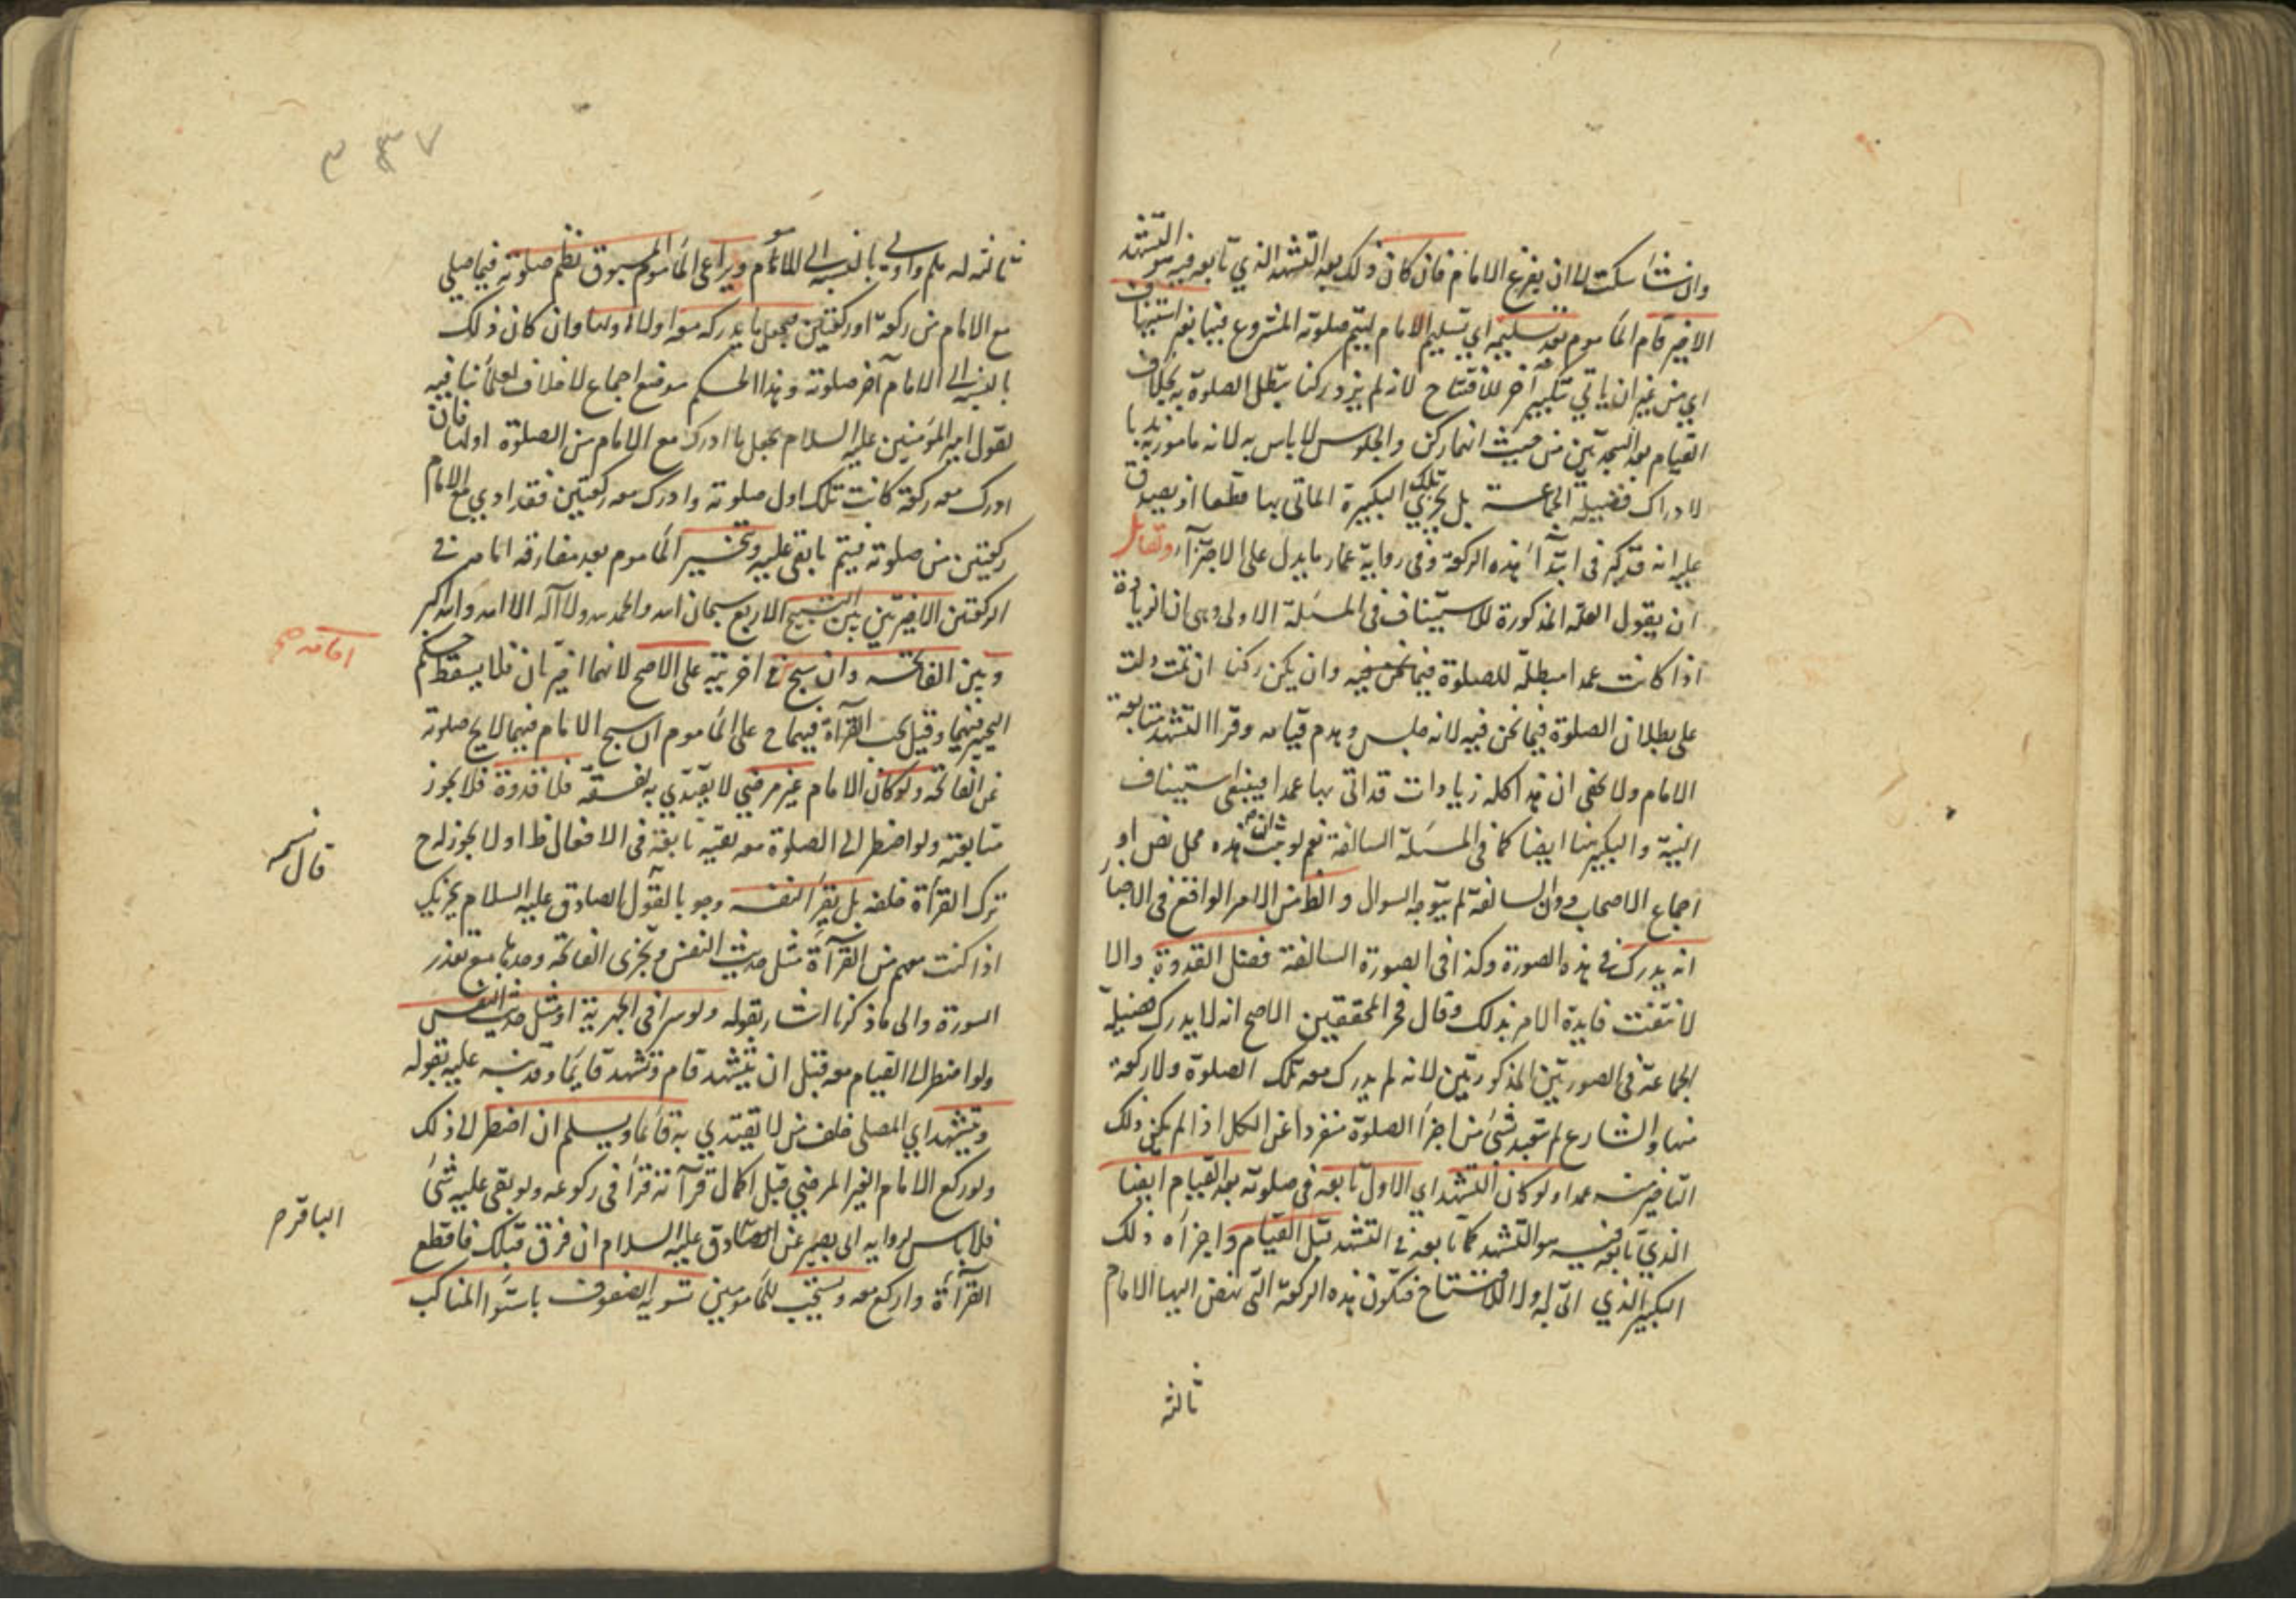 وان شاء سكت الى ان يفرغ الامام فان كان ذلك بعد التشهد الذي تابعه فيه هو التشهد
الاخير قام المأموم بعد تسليمه اي تسليم الامام ليتم صلوته المشروع فيها بغير استيناف
اي من غير ان ياتي بتكبير آخر للافتتاح لانه لم يزد ركنا يبطل الصلوة به بخلاف
القيام بعد السجدتين من حيث انهما ركن والجلوس لا باس به لانه مامور به ندبا
لادراك فضيلة الجماعة بل تجزي تلك التكبيرة الماتى بها قطعا اذ يصدق
عليه انه قد كبر فى ابتداء هذه الركعة وفى رواية عمار ما يدل على الاجتزاء ولقائل
ان يقول العلة المذكورة للاستيناف فى المسئلة الاولى وهى ان الزيادة
اذا كانت عمدا مبطلة للصلوة فيما نحن فيه وان يكن ركنا ان تمت دلت
على بطلان الصلوة فيما نحن فيه لانه جلس وهدم قيامه وقرا التشهد متابعة
الامام ولا يخفى ان هذا كله زيادات قد اتى بها عمدا فينبغى استيناف
النية والتكبير هنا ايضا كما فى المسئلة السالفة نعم لو ثبت ان هذه محل نص او
اجماع الاصحاب دون السالفة لم يتوجه السوال والظ من الامر الواقع فى الاخبار
انه يدرك في هذه الصورة وكذا فى الصورة السالفة فضل القدوة والا
لانتفت فايدة الامر بذلك وقال فخر المحققين الاصح انه لا يدرك فضيلة
الجماعة فى الصورتين المذكورتين لانه لم يدرك معه تلك الصلوة ولا ركعة
منها والشارع لم يتعبد بشئ من اجزاء الصلوة منفردا عن الكل اذا لم يكن ذلك
التاخير منه عمدا ولو كان التشهد اي الاول تابعه فى صلوته بعد القيام ايضا
الذي تابعه فيه هو التشهد كما تابعه في التشهد قبل القيام واجزأه ذلك
التكبير الذي اتى به اولا للافتتاح فتكون هذه الركعة التى نهض اليها الامام
ثالثة
٣٤٧
ثالثة له واولى بالنسبة الى المأموم ويراعى المأموم المسبوق نظم صلوته فيما صلى
مع الامام من ركعة او ركعتين فيجعل ما يدركه معه اولا اولها وان كان ذلك
بالنسبة الى الامام آخر صلوته وهذا الحكم موضع اجماع لا خلاف لعلمائنا فيه
لقول امير المؤمنين عليه السلام يجعل ما ادرك مع الامام من الصلوة اولها فان
ادرك معه ركعة كانت تلك اول صلوته وادرك معه ركعتين فقد ادى مع الامام
ركعتين من صلوته فيتم ما بقى عليه ويتخير المأموم بعد مفارقة امامه في
الركعتين الاخيرتين بين التسبيح الاربع سبحان الله والحمد لله ولا اله الا الله والله اكبر
وبين الفاتحه وان سبح في اخرييه على الاصح لانهما اخيرتان فلا يسقط حكم
امامه صح
التخيير فيهما وقيل تجب القرآءة فيهما ح على المأموم ان سبح الامام فيهما لئلا يخ صلوته
عن الفاتحة ولو كان الامام غير مرضي لا يقتدي به لفسقه فلا قدوة فلا يجوز
متابعته ولو اضطر الى الصلوة معه تقية تابعة فى الافعال ظ اولا يجوز له ح
قال نسمه
ترك القرأة خلفه بل يقرأ لنفسه وجوبا لقول الصادق عليه السلام يجزيك
اذا كنت معهم من القرآءة مثل حديث النفس وتجزى الفاتحة وحدها مع تعذر
السورة والى ما ذكرنا اشار بقوله ولو سرا فى الجهرية او مثل حديث النفس
ولو اضطر الى القيام معه قبل ان يتشهد قام وتشهد قايما وقد نبه عليه بقوله
ويتشهد اي المصلي خلف من لا يقتدي به قائما ويسلم ان اضطر الى ذلك
ولو ركع الامام الغير المرضي قبل اكمال قرآءته قرأ فى ركوعه ولو بقى عليه شئ
الباقر م
فلا باس لرواية ابى بصير عن الصادق عليه السلام ان فرق قبلك فاقطع
القرآءة واركع معه ويستحب للمأمومين تسوية الصفوف باستوا المناكب